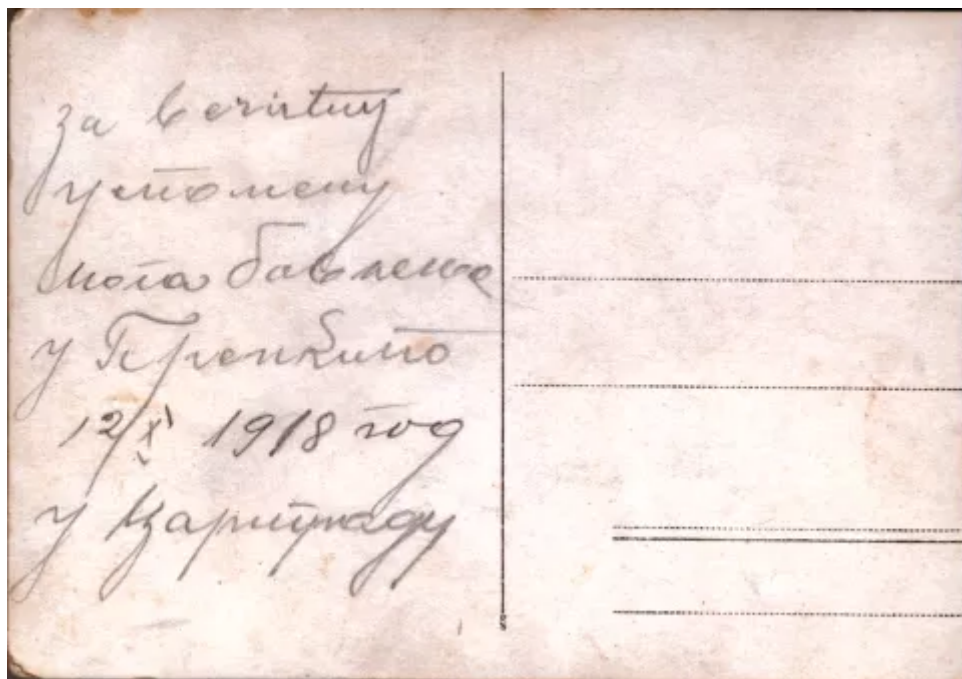 за вечиту
успомену
мога бавлена
у
12/X 1918 год
у Цариграду